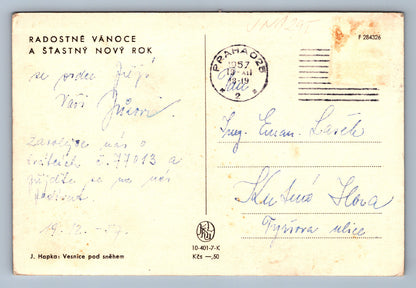 RADOSTNÉ VÁNOCE
A ŠŤASTNÝ NOVÝ ROK
F 284326
PRAHA 025
1957
2
se srdce přejí
Vaši
Zavolejte nás o
svátcích č. 77013 a
přijďte se na nás
podívat
19. 12. 57.
Ing. Eman.
Kutná Hora
Tyršova ulice
10-401-7-K
Kčs —,50
J. Hapka: Vesnice pod sněhem